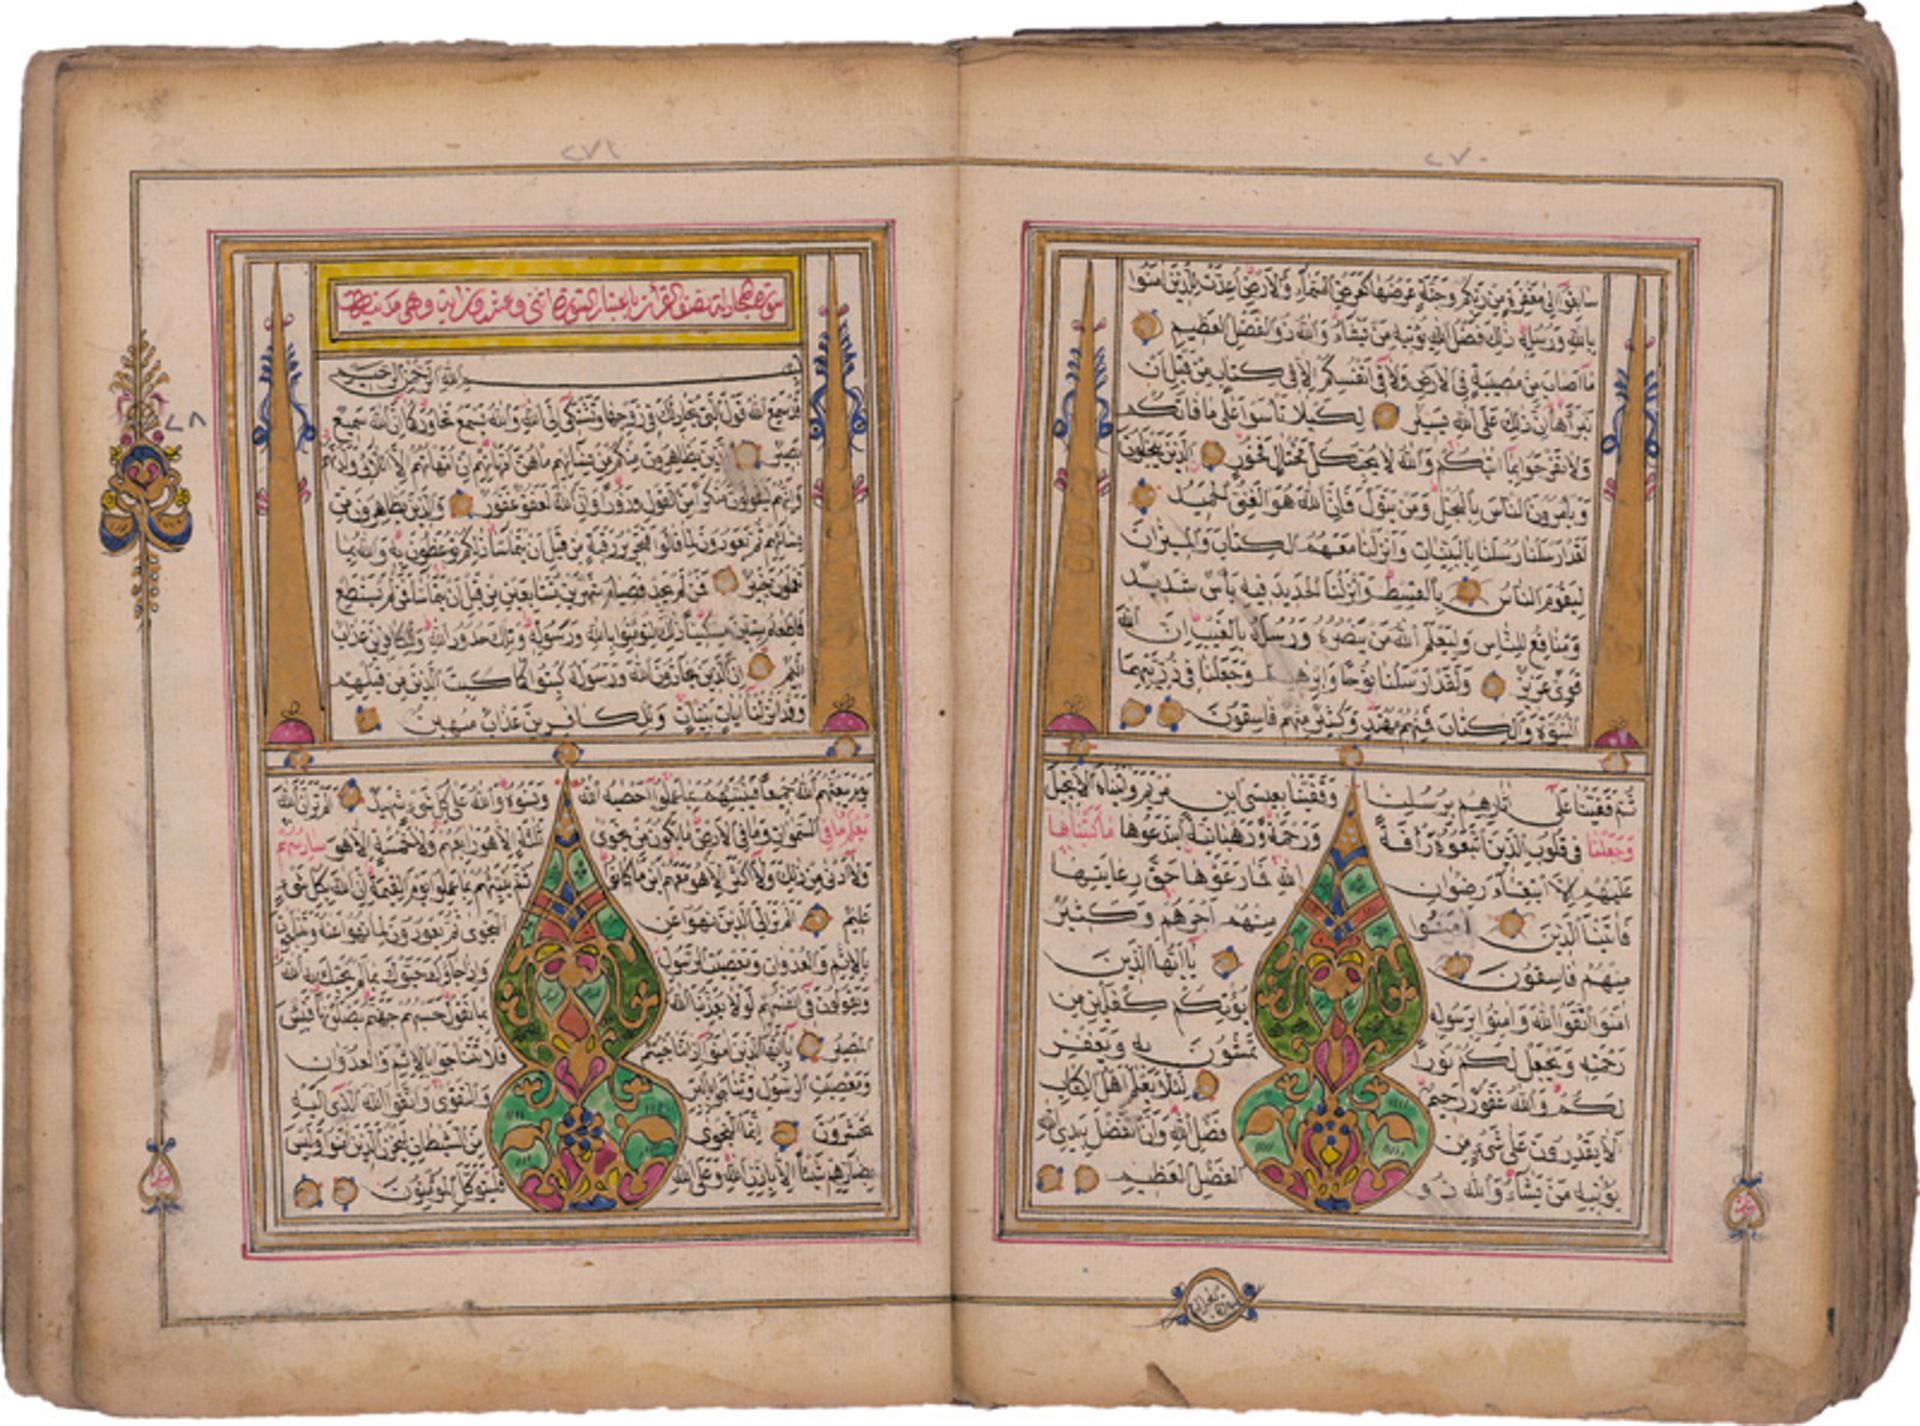 ٢٧٠
سابقوا إلى مغفرة من ربكم وجنة عرضها كعرض السماء والأرض أعدت للذين امنوا
بالله ورسله ذلك فضل الله يؤتيه من يشاء والله ذو الفضل العظيم
ما اصاب من مصيبة في الارض ولا في انفسكم الا في كتاب من قبل ان
نبرأها ان ذلك على الله يسير لكيلا تأسوا على ما فاتكم
ولا تفرحوا بما اتيكم والله لا يحب كل مختال فخور الذين يبخلون
ويأمرون الناس بالبخل ومن يتول فان الله هو الغني الحميد
لقد ارسلنا رسلنا بالبينات وانزلنا معهم الكتاب والميزان
ليقوم الناس بالقسط وانزلنا الحديد فيه بأس شديد
ومنافع للناس وليعلم الله من ينصره ورسله بالغيب ان الله
قوي عزيز ولقد ارسلنا نوحا وابرهيم وجعلنا في ذريتهما
النبوة والكتاب فمنهم مهتد وكثير منهم فاسقون
ثم قفينا على اثارهم برسلنا وقفينا بعيسى ابن مريم واتيناه الانجيل
وجعلنا في قلوب الذين اتبعوه رأفة ورحمة ورهبانية ابتدعوها ماكتبناها
عليهم الا ابتغاء رضوان الله فما رعوها حق رعايتها
فاتينا الذين امنوا منهم اجرهم وكثير
منهم فاسقون ياايها الذين
امنوا اتقوا الله وامنوا برسوله يؤتكم كفلين من
رحمته ويجعل لكم نورا تمشون به ويغفر
لكم والله غفور رحيم لئلا يعلم اهل الكتاب
الا يقدرون على شيء من فضل الله وان الفضل بيد الله
يؤتيه من يشاء والله ذو الفضل العظيم
٢٧١
بسم الله الرحمن الرحيم
قد سمع الله قول التي تجادلك في زوجها وتشتكي الى الله والله يسمع تحاوركما ان الله سميع
بصير الذين يظاهرون منكم من نسائهم ما هن امهاتهم ان امهاتهم الا اللائي ولدنهم
وانهم ليقولون منكرا من القول وزورا وان الله لعفو غفور والذين يظاهرون من
نسائهم ثم يعودون لما قالوا فتحرير رقبة من قبل ان يتماسا ذلكم توعظون به والله بما
تعملون خبير فمن لم يجد فصيام شهرين متتابعين من قبل ان يتماسا فمن لم يستطع
فاطعام ستين مسكينا ذلك لتؤمنوا بالله ورسوله وتلك حدود الله وللكافرين عذاب
اليم ان الذين يحادون الله ورسوله كبتوا كما كبت الذين من قبلهم
وقد انزلنا ايات بينات وللكافرين عذاب مهين
يوم يبعثهم الله جميعا فينبئهم بما عملوا احصيه الله ونسوه والله على كل شيء شهيد الم تر ان الله
يعلم ما في السموات وما في الارض ما يكون من نجوى ثلثة الا هو رابعهم ولا خمسة الا هو سادسهم
ولا ادنى من ذلك ولا اكثر الا هو معهم اين ما كانوا ثم ينبئهم بما عملوا يوم القيمة ان الله بكل شيء
عليم الم تر الى الذين نهوا عن النجوى ثم يعودون لما نهوا عنه ويتناجون
بالاثم والعدوان ومعصيت الرسول واذا جاؤك حيوك بما لم يحيك به الله
ويقولون في انفسهم لولا يعذبنا الله بما نقول حسبهم جهنم يصلونها فبئس
المصير ياايها الذين امنوا اذا تناجيتم فلا تتناجوا بالاثم والعدوان
ومعصيت الرسول وتناجوا بالبر والتقوى واتقوا الله الذي اليه
تحشرون انما النجوى من الشيطان ليحزن الذين امنوا وليس
بضارهم شيئا الا باذن الله وعلى الله فليتوكل المؤمنون
٢٨